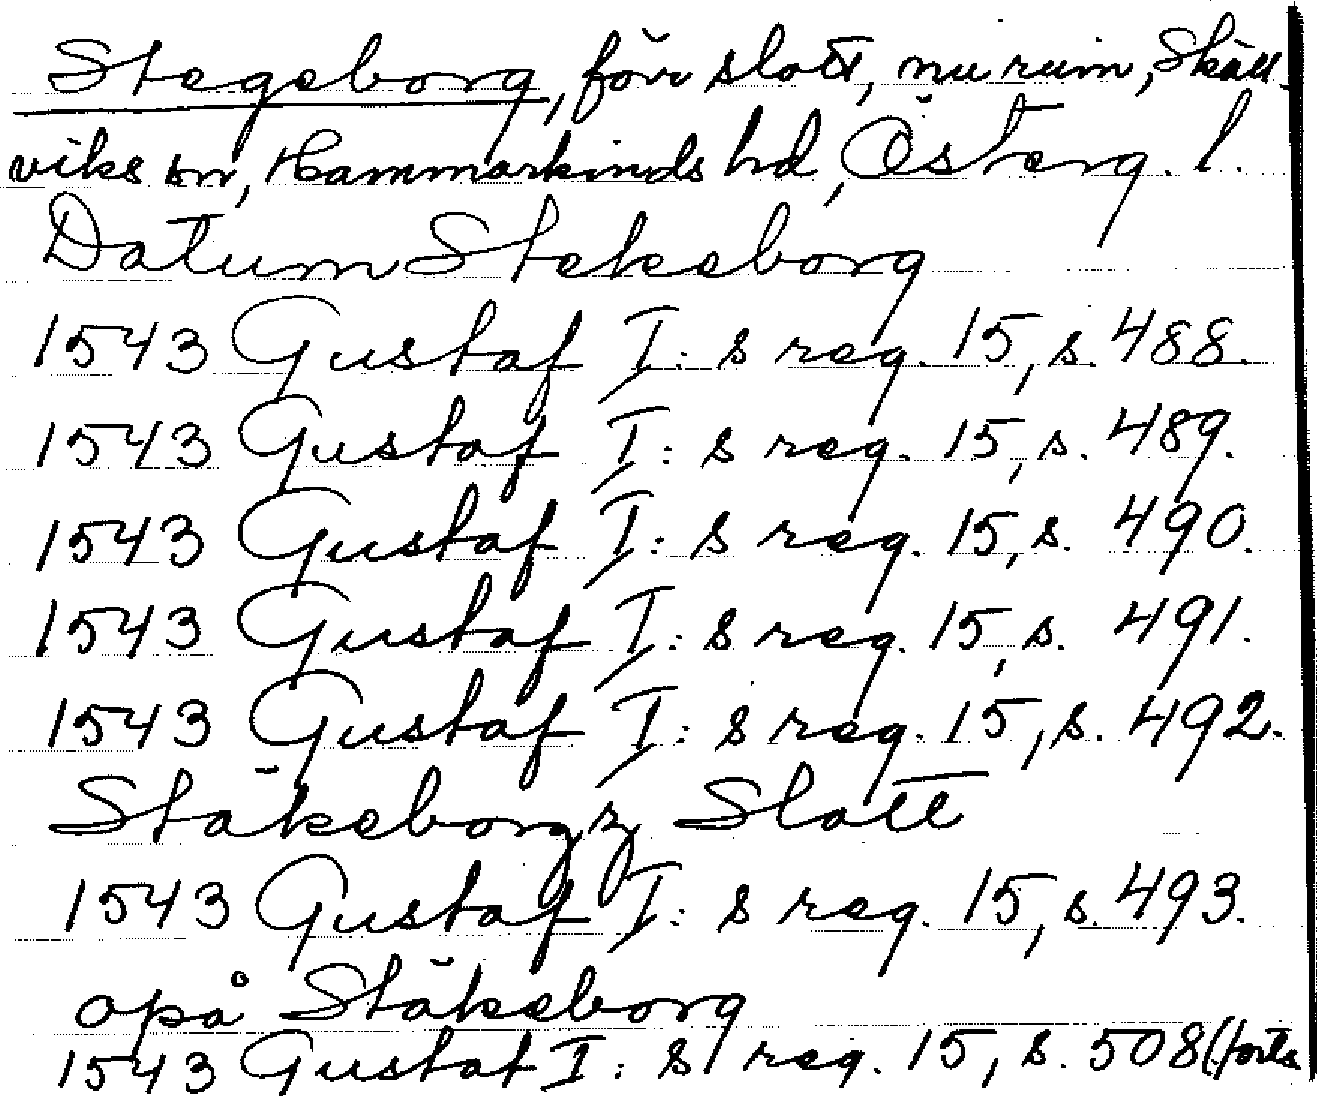 Stegeborg, förr slott, nu ruin, Skäll-
viks sn, Hammarkinds hd, Österg. l.
Datum Stekeborg
1543 Gustaf I: s reg. 15, s. 488.
1543 Gustaf I: s reg. 15, s. 489.
1543 Gustaf I: s reg. 15, s. 490.
1543 Gustaf I: s reg. 15, s. 491.
1543 Gustaf I: s reg. 15, s. 492.
Stäkeborgz Slott
1543 Gustaf I: s reg. 15, s. 493.
opå Stäkeborg
1543 Gustaf I: s reg. 15, s. 508 (forts